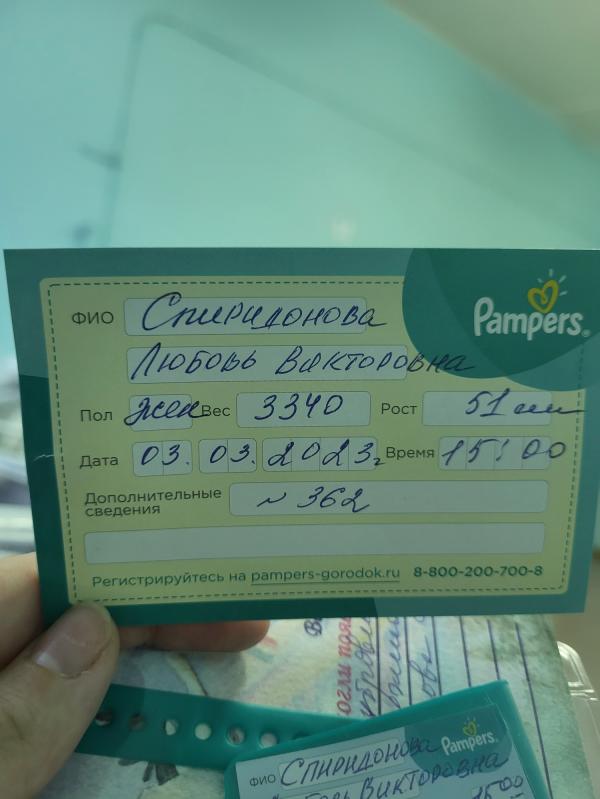 Pampers®
ФИО Спиридонова
Любовь Викторовна
Пол жен Вес 3340 Рост 51 см
Дата 03. 03. 2023г Время 15:00
Дополнительные сведения ~ 362
Регистрируйтесь на pampers-gorodok.ru 8-800-200-700-8
огли
Pampers
ФИО Спиридонова
Викторовна
15 00